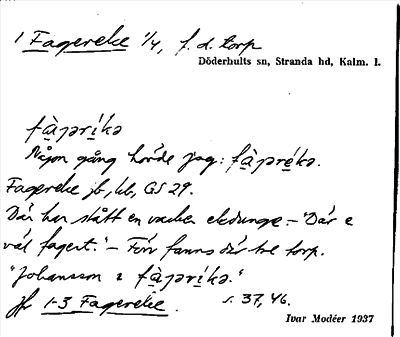 1 Fagereke 1/4, f. d. torp
Döderhults sn, Stranda hd, Kalm. l.
fàjəríkə
Någon gång hörde jag: fàjəréke.
Fagereke jb, kb, GS 29.
Där har stått en vacker ekdunge. – "Där e
väl fagert." – Förr fanns där tre torp.
"Johansson i fàjəríkə."
Jfr 1-3 Fagereke. s. 37, 46.
Ivar Modéer 1937